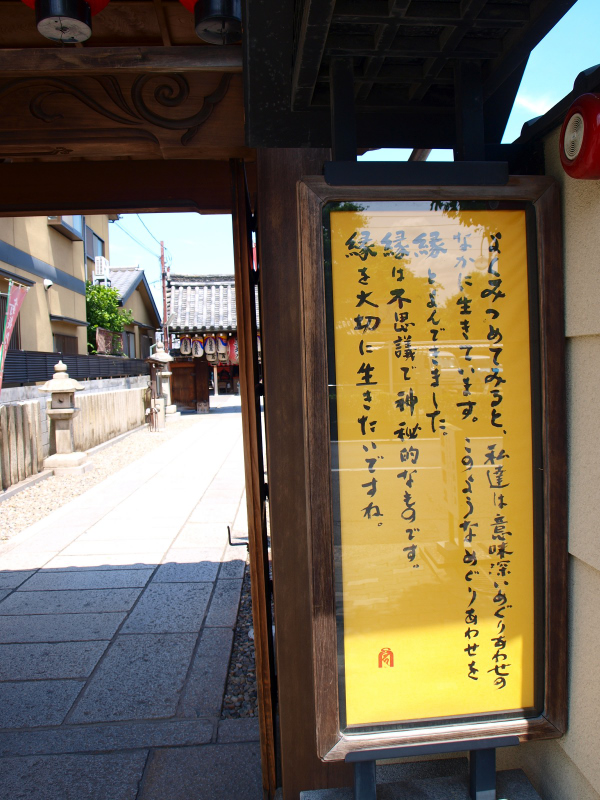 よくみつめてみると、私達は意味深いめぐりあわせの
なかに生きています。このようなめぐりあわせを
縁とよんできました。
縁は不思議で神秘的なものです。
縁を大切に生きたいですね。